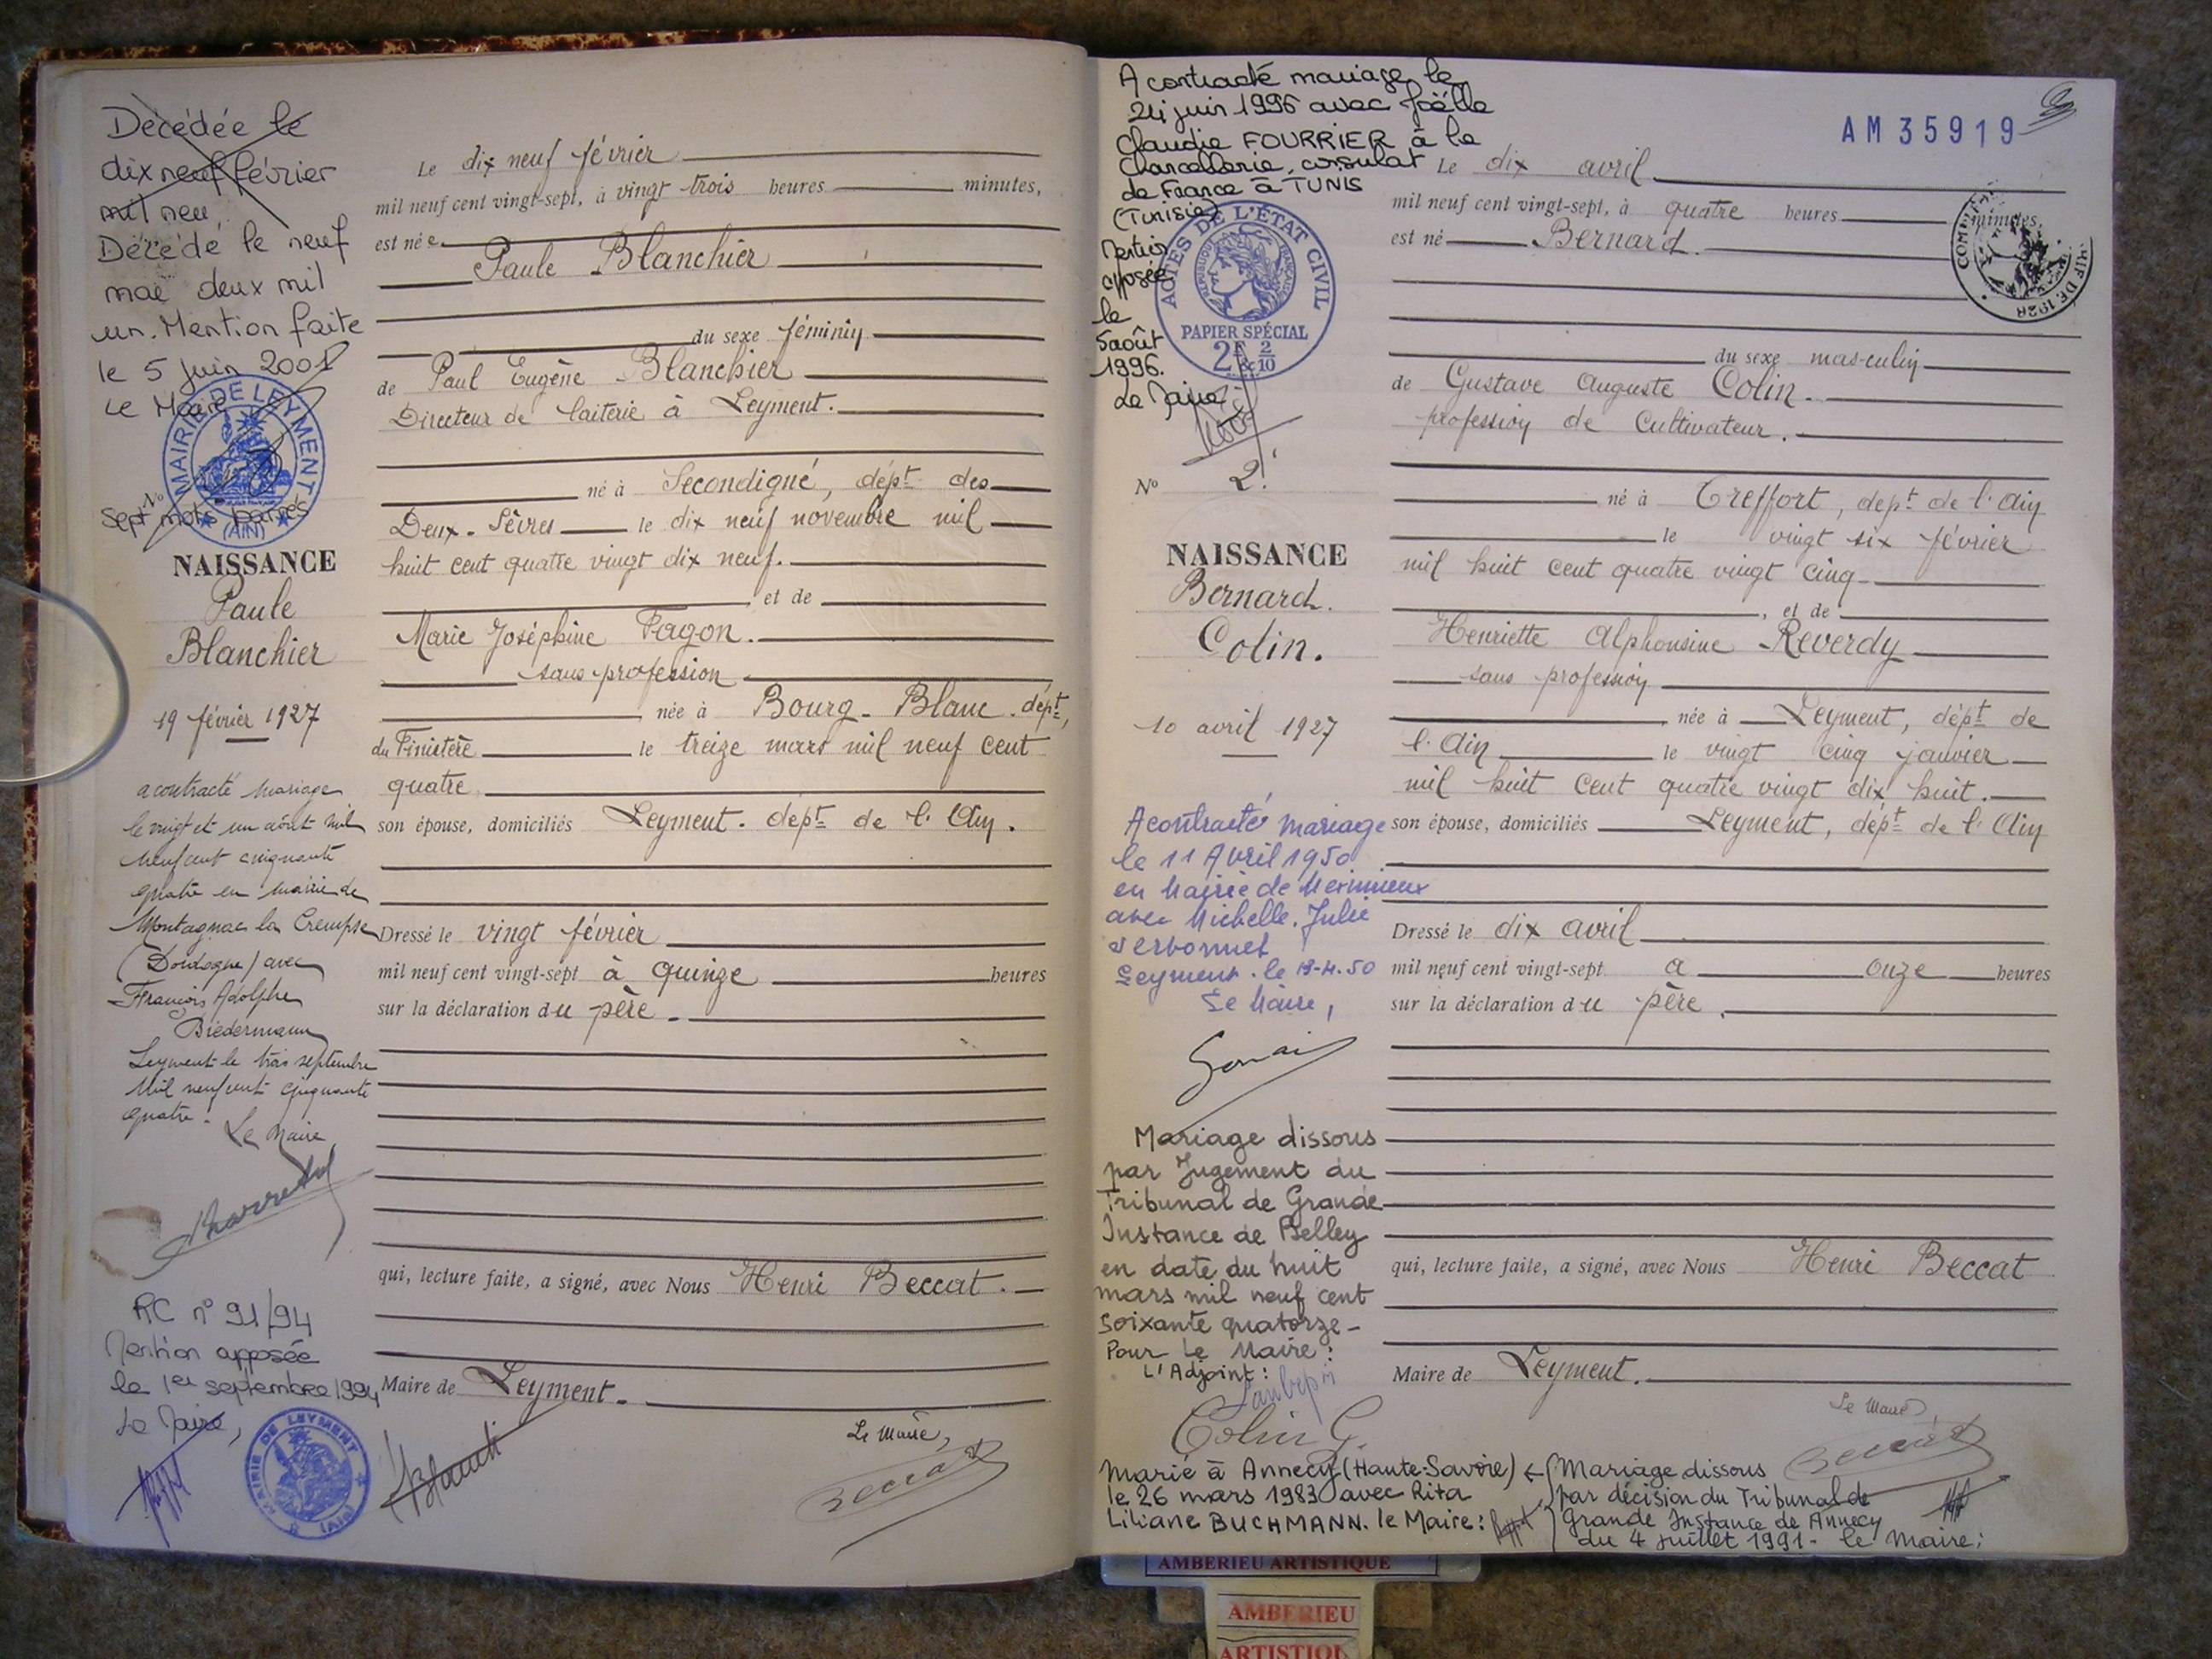 Décédée le
dix neuf février
mil neu
Décédé le neuf
mai deux mil
un. Mention faite
le 5 juin 2001
Le Maire
MAIRIE DE LEYMENT
(AIN)
No
Sept mots barrés
NAISSANCE
Paule
Blanchier
19 février 1927
a contracté mariage
le vingt et un août mil
neuf cent cinquante
quatre en mairie de
Montagnac la Crempse
(Dordogne) avec
François Adolphe
Biedermann
Leyment le trois septembre
mil neuf cent cinquante
quatre.
Le Maire
RC n° 91/94
Mention apposée
le 1er septembre 1994
Le Maire,
MAIRIE DE LEYMENT
(AIN)
Le dix neuf février
mil neuf cent vingt-sept, à vingt trois heures minutes,
est née
Paule Blanchier
du sexe féminin
de Paul Eugène Blanchier
Directeur de laiterie à Leyment.
né à Secondigné, dépt des
Deux-Sèvres le dix neuf novembre mil
huit cent quatre vingt dix neuf.
, et de
Marie Joséphine Fagon.
sans profession
née à Bourg-Blanc. dépt,
du Finistère le treize mars mil neuf cent
quatre
son épouse, domiciliés Leyment. dépt de l'Ain.
Dressé le vingt février
mil neuf cent vingt-sept à quinze heures
sur la déclaration du père.
qui, lecture faite, a signé, avec Nous Henri Beccat.
Maire de Leyment.
Le Maire,
Beccat
A contracté mariage le
24 juin 1996 avec Joëlle
Claudie FOURRIER à la
Chancellerie, consulat
de France à TUNIS
(Tunisie)
Mention
apposée
le
5 août
1996.
Le Maire
ACTES DE L'ÉTAT CIVIL
RÉPUBLIQUE FRANÇAISE
PAPIER SPÉCIAL
2F & 2/10
No 2.
NAISSANCE
Bernard.
Colin.
10 avril 1927
A contracté mariage
le 11 Avril 1950
en Mairie de Meximieux
avec Michelle. Julie
Leyment. le 13-4.50
Le Maire,
Mariage dissous
par Jugement du
Tribunal de Grande
Instance de Belley
en date du huit
mars mil neuf cent
soixante quatorze-
Pour Le Maire:
L'Adjoint:
Colin G.
AM35919
Le dix avril
mil neuf cent vingt-sept, à quatre heures minutes,
est né Bernard.
du sexe mas-culin
de Gustave Auguste Colin.
profession de Cultivateur.
né à Treffort, dept de l'Ain
le vingt six février
mil huit cent quatre vingt cinq
, et de
Henriette Alphonsine Reverdy
sans profession
, née à Leyment, dépt de
l'Ain le vingt cinq janvier
mil huit cent quatre vingt dix huit.
son épouse, domiciliés Leyment, dépt de l'Ain
Dressé le dix avril
mil neuf cent vingt-sept a onze heures
sur la déclaration du père.
qui, lecture faite, a signé, avec Nous Henri Beccat
Maire de Leyment.
Le Maire,
Beccat
Marié à Annecy (Haute-Savoie)
le 26 mars 1983 avec Rita
Liliane BUCHMANN. le Maire:
Mariage dissous
par décision du Tribunal de
Grande Instance de Annecy
du 4 juillet 1991- le Maire:
AMBERIEU ARTISTIQUE
AMBERIEU
ARTISTIQU